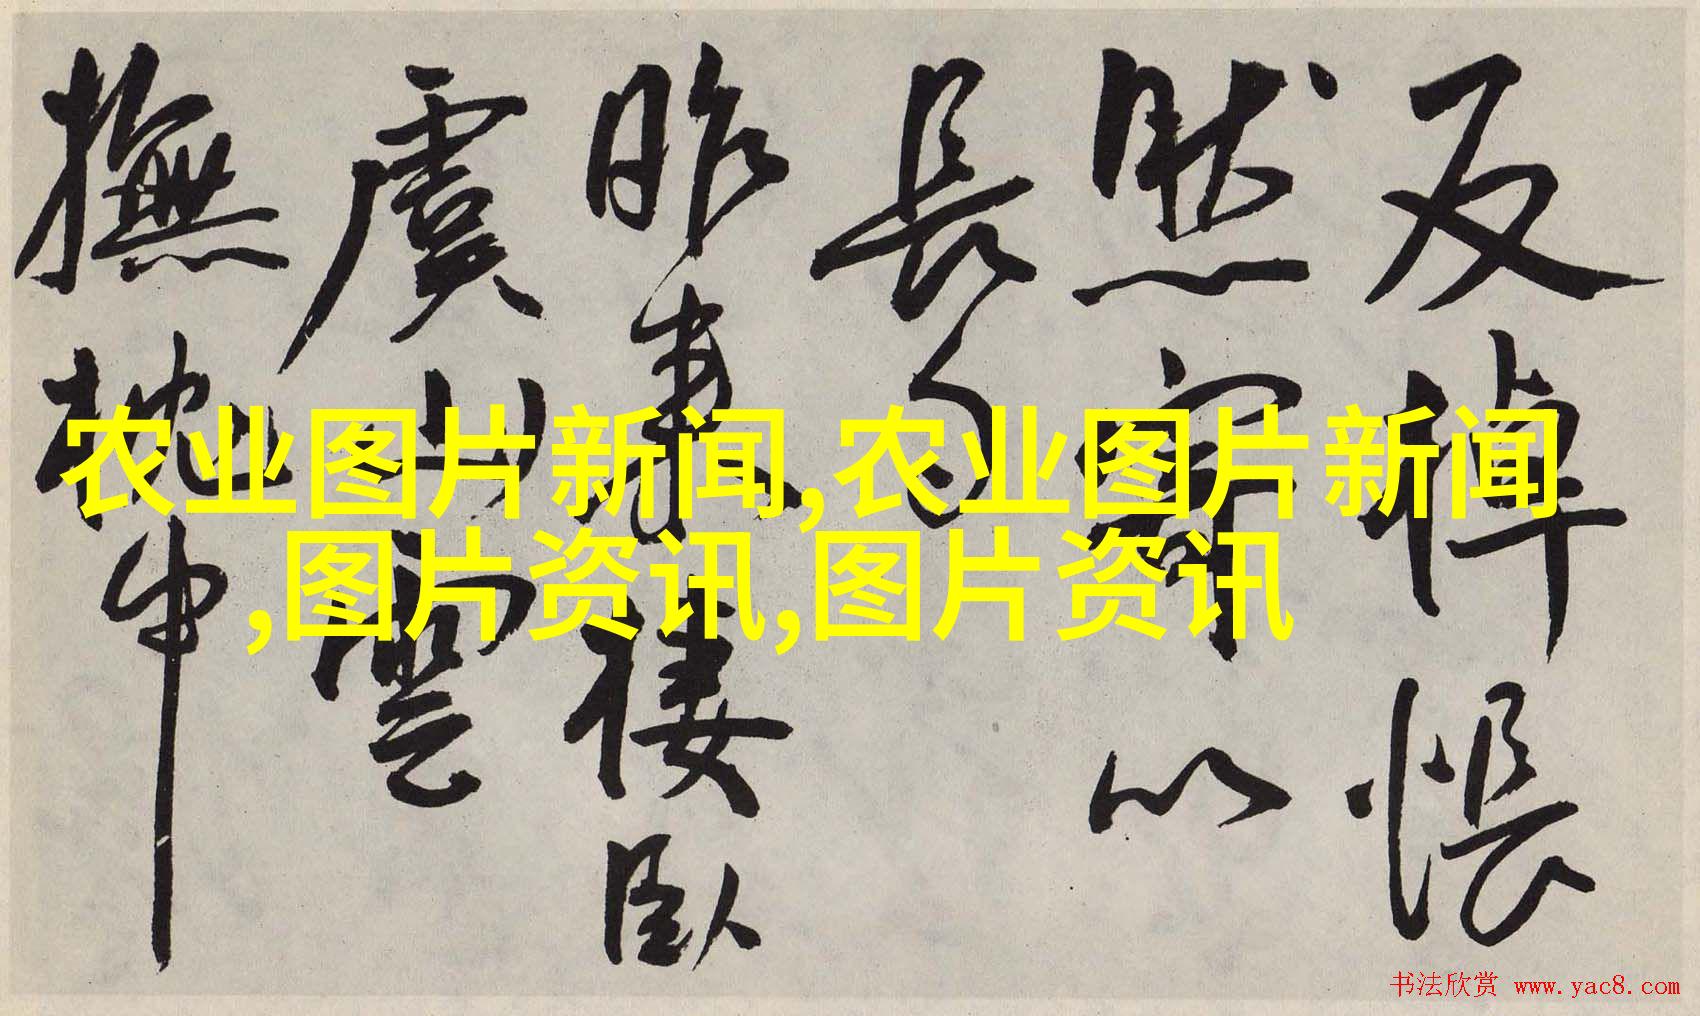 反棹悵
然寄以
長句
昨來棲臥
虞山雲
撫申
农业图片新闻,农业图片新闻
,图片资讯,图片资讯
书法欣赏 www.yac8.com